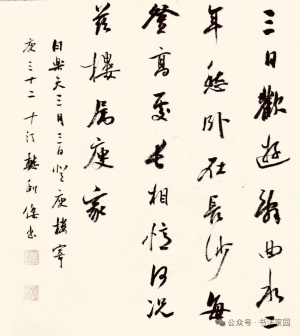 三日歡遊辭曲水二
年愁卧在長沙每
登高處長相憶何況
茲樓屬庾家
白樂天三月三日登庾樓寄
庾三十二
公众号·书法家园